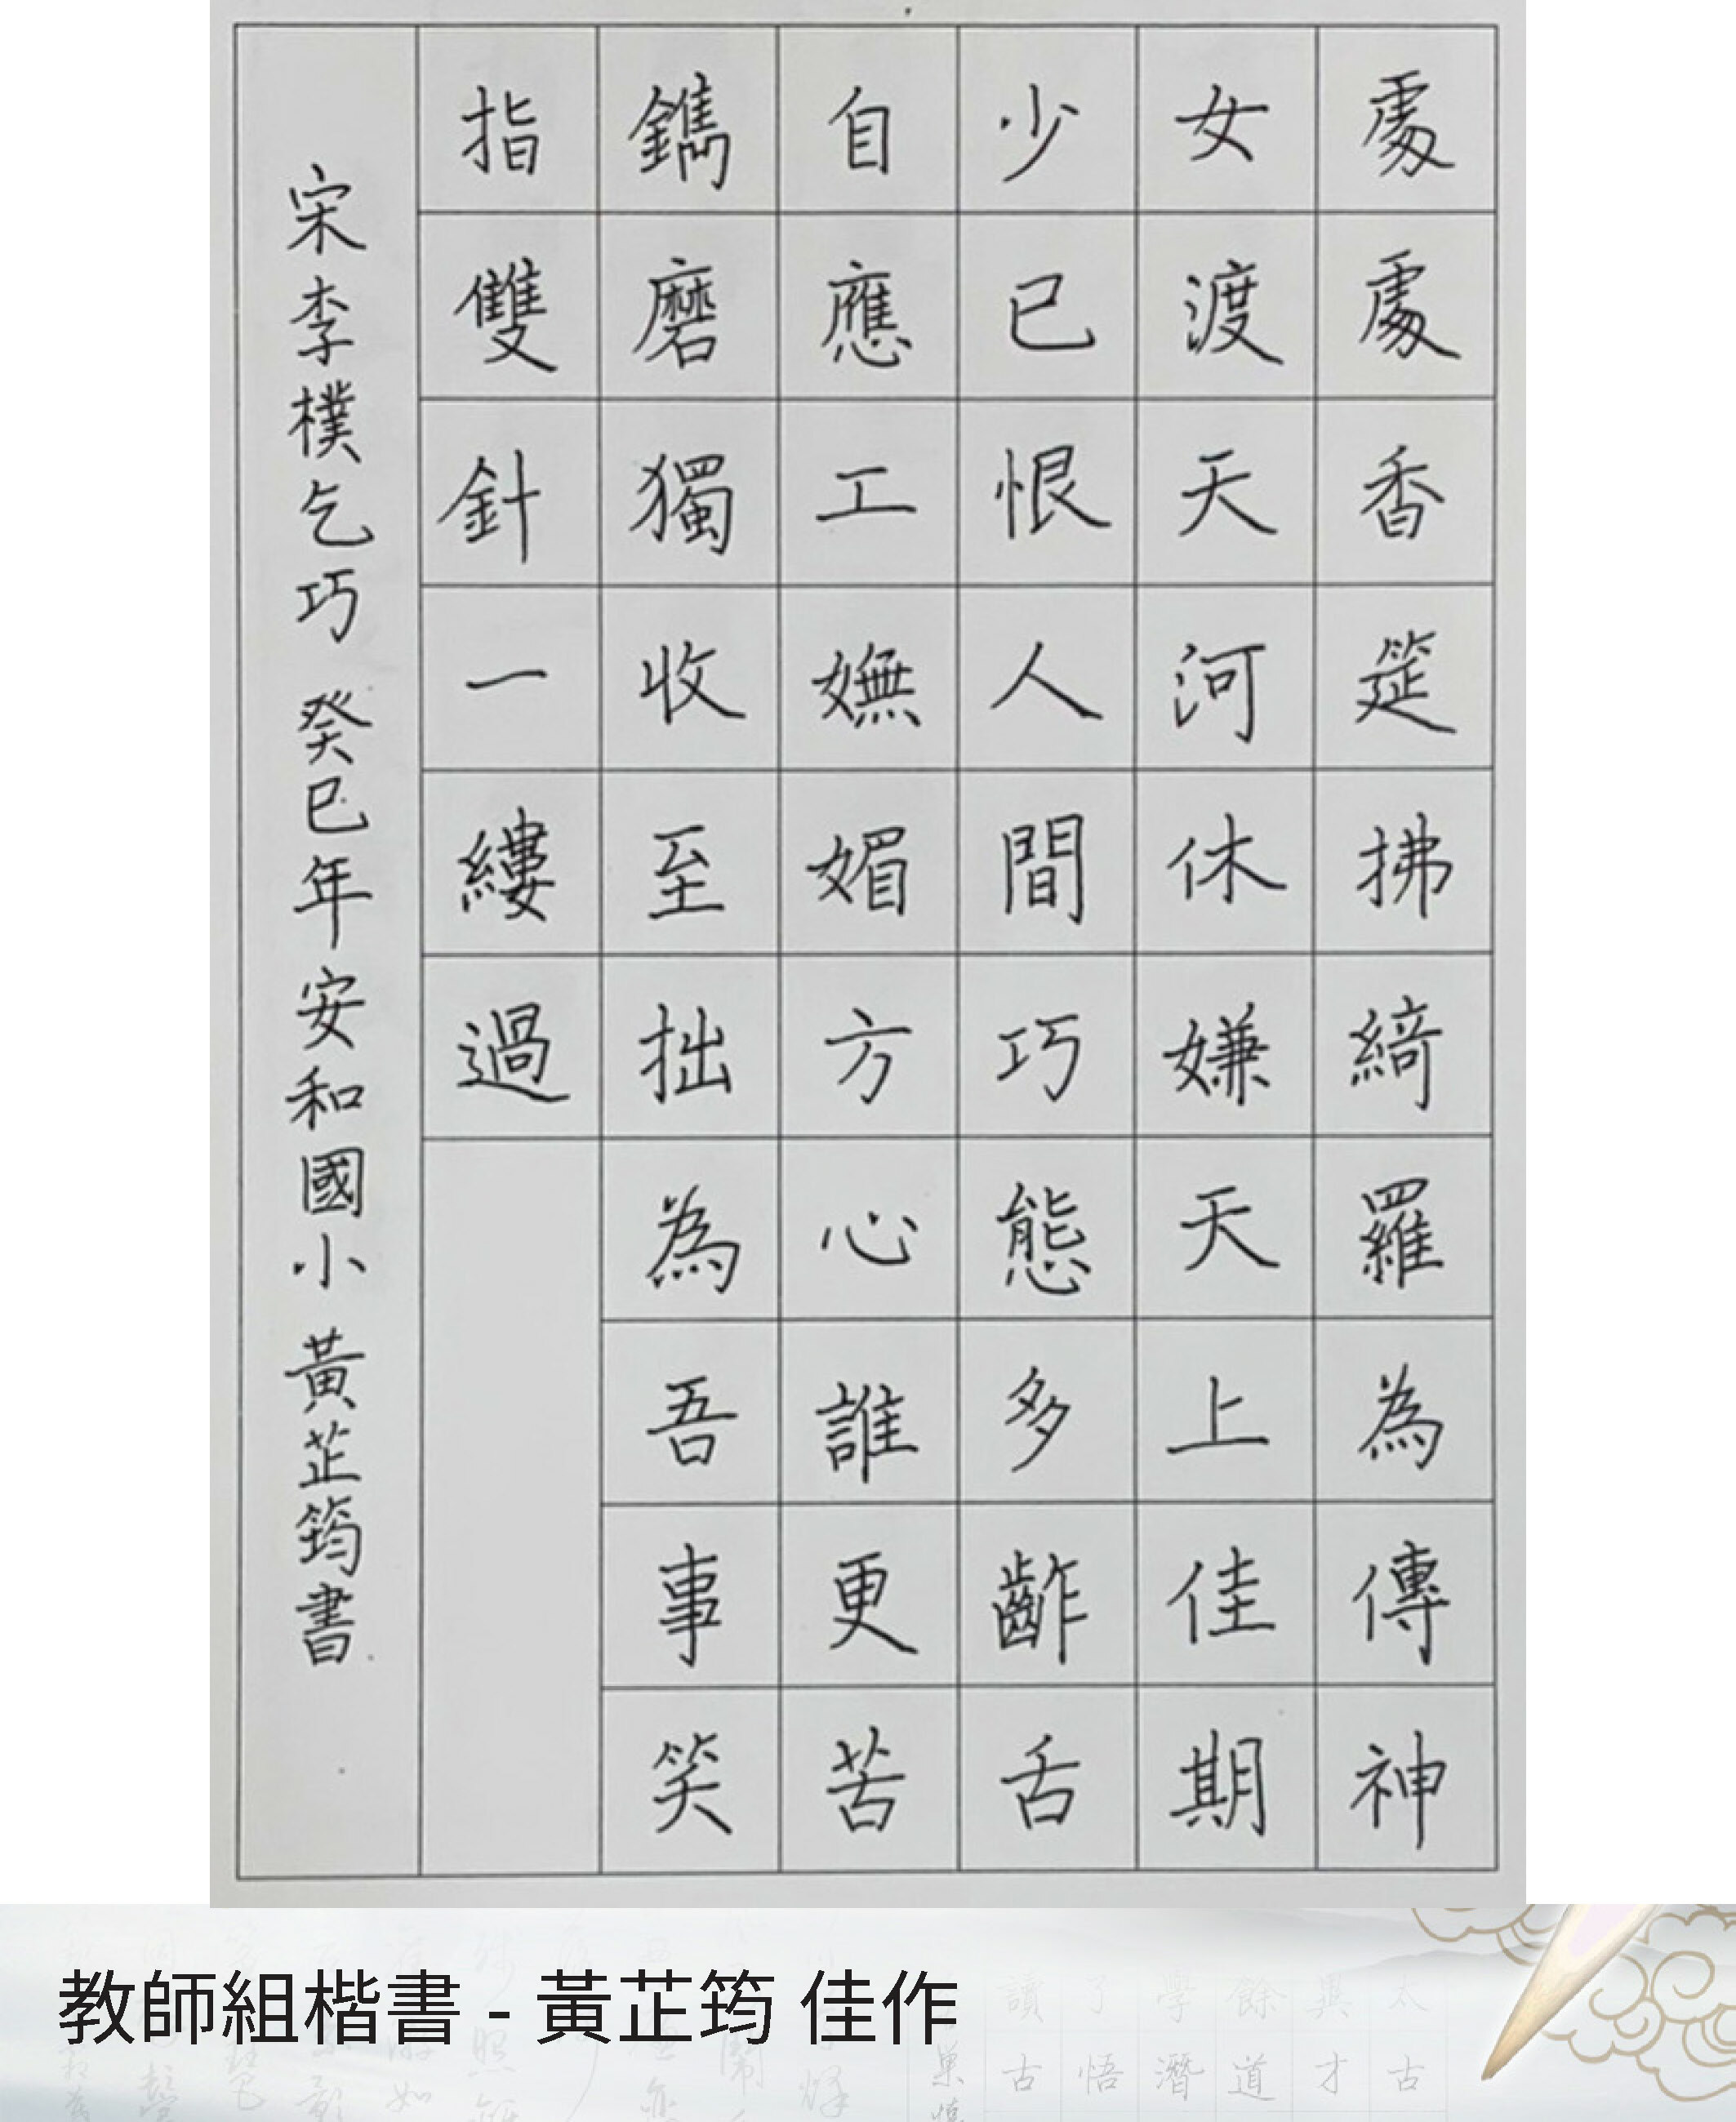 處處香筵拂綺羅為傳神
女渡天河休嫌天上佳期
少已恨人間巧態多齰舌
自應工嫵媚方心誰更苦
鐫磨獨收至拙為吾事笑
指雙針一縷過
宋李樸乞巧 癸巳年安和國小 黃芷筠書
教師組楷書 - 黃芷筠 佳作